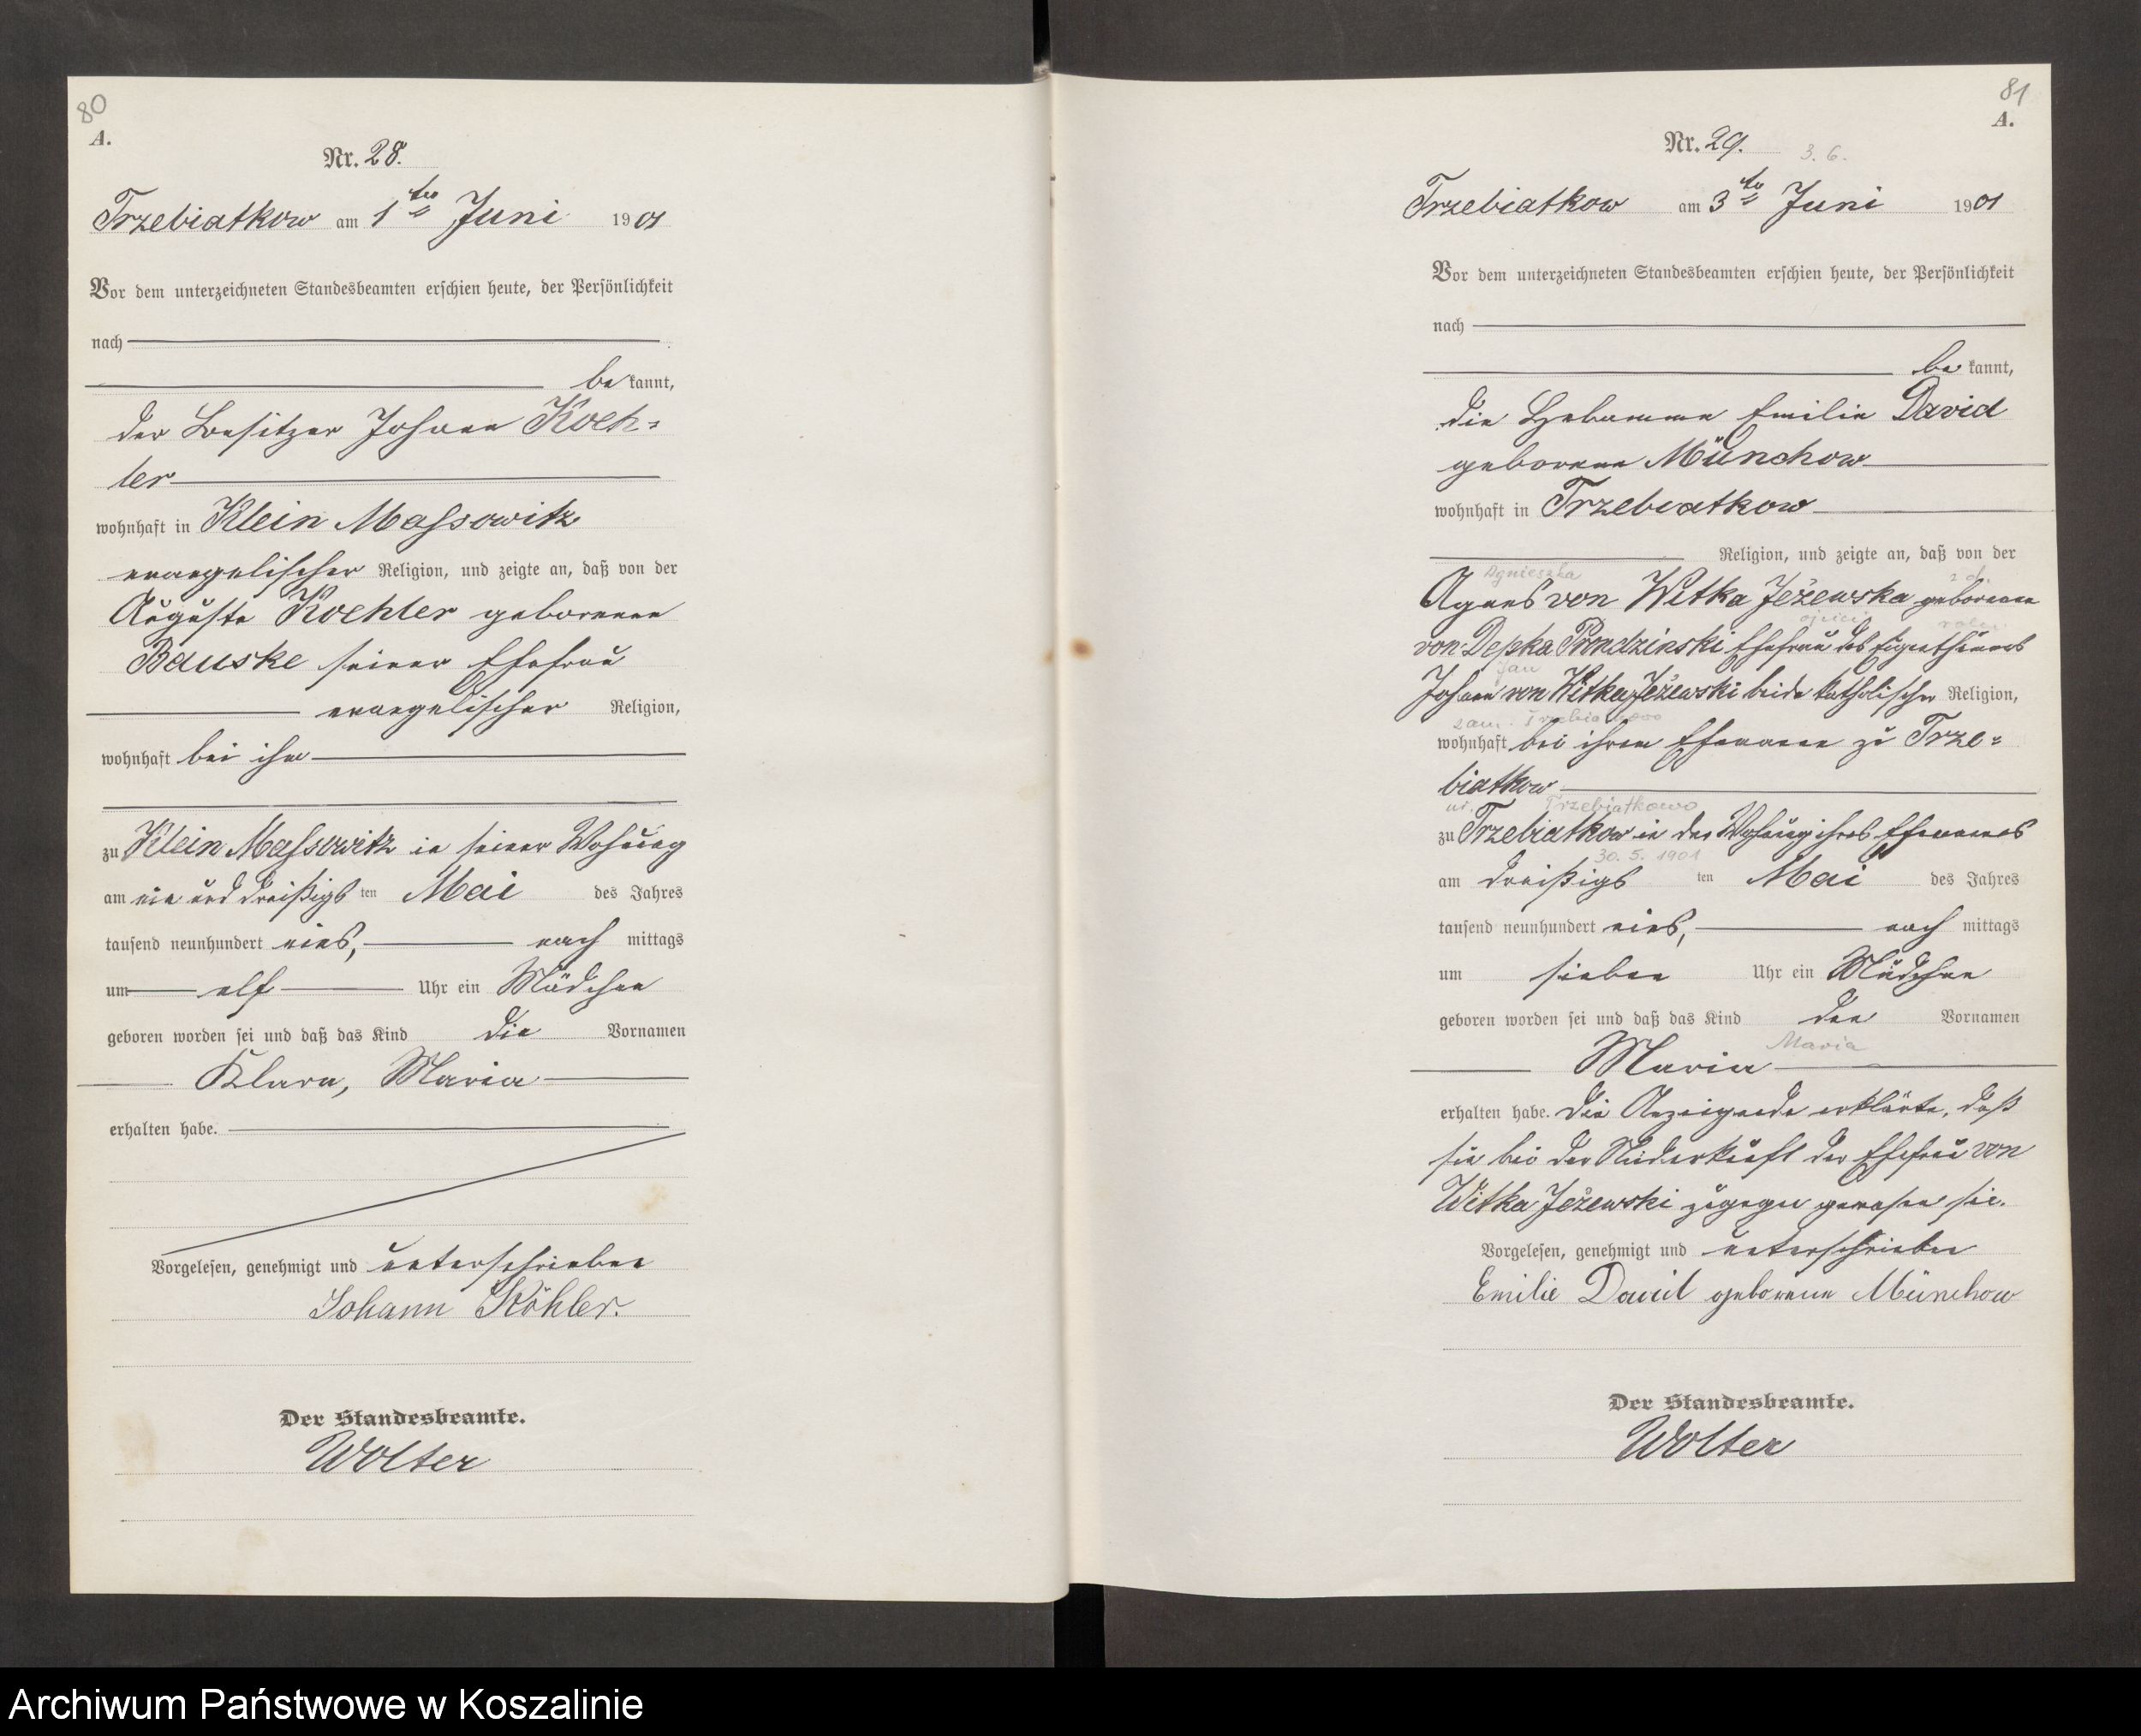 80
A.
Nr. 28.
Trzebiatkow am 1ten Juni 1901
Vor dem unterzeichneten Standesbeamten erschien heute, der Persönlichkeit
nach
be kannt,
der Besitzer Johann Koeh=
ler
wohnhaft in Klein Massowitz
evangelischer Religion, und zeigte an, daß von der
Auguste Koehler geborenen
Bauske seiner Ehefrau
evangelischer Religion,
wohnhaft bei ihm
zu Klein Massowitz in seiner Wohnung
am ein und dreißigs ten Mai des Jahres
tausend neunhundert eins, nach mittags
um elf Uhr ein Mädchen
geboren worden sei und daß das Kind die Vornamen
Klara, Maria
erhalten habe.
Vorgelesen, genehmigt und unterschrieben
Johann Köhler.
Der Standesbeamte.
Wolter
81
A.
Nr. 29. 3. 6.
Trzebiatkow am 3ten Juni 1901
Vor dem unterzeichneten Standesbeamten erschien heute, der Persönlichkeit
nach
be kannt,
die Hebamme Emilie David
geborene Münchow
wohnhaft in Trzebiatkow
Religion, und zeigte an, daß von der
Agnieszka z d.
Agnes von Witka Jeżewska geborenen
ojciec
von Depka Prondzinski Ehefrau des Eigenthümers
Jan
Johann von Witka Jeżewski beide katholischer Religion,
zam. Trzebiatkowo
wohnhaft bei ihrem Ehemann zu Trze=
biatkow
ur. Trzebiatkowo
zu Trzebiatkow in der Wohnung ihres Ehemannes
30. 5. 1901
am dreißigs ten Mai des Jahres
tausend neunhundert eins, nach mittags
um sieben Uhr ein Mädchen
geboren worden sei und daß das Kind den Vornamen
Maria
Maria
erhalten habe. Die Anzeigende erklärte, daß
sie bei der Niederkunft der Ehefrau von
Witka Jeżewski zugegen gewesen sei.
Vorgelesen, genehmigt und unterschrieben
Emilie David geborene Münchow
Der Standesbeamte.
Wolter
Archiwum Państwowe w Koszalinie